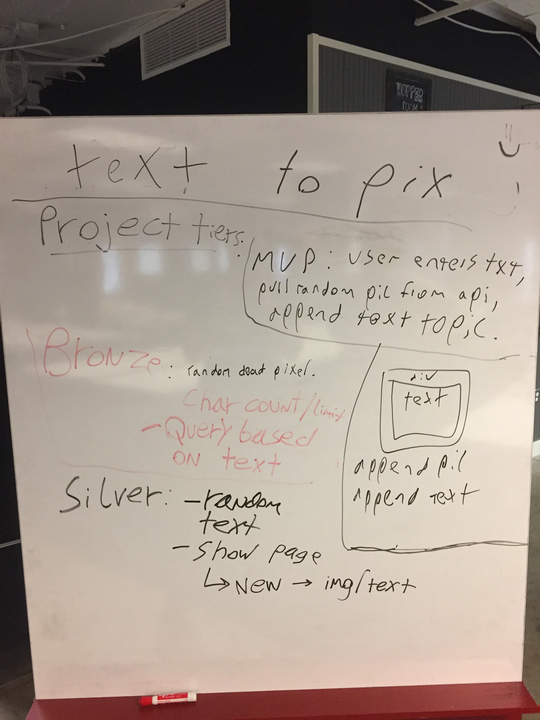 text to pix
Project tiers:
MVP: user enters txt,
pull random pic from api,
append text topic.
Bronze: random dead pixel.
Char count/limit
- Query based
on text
div
text
append pic
append text
Silver: - random
text
- Show page
↳ New → img/text